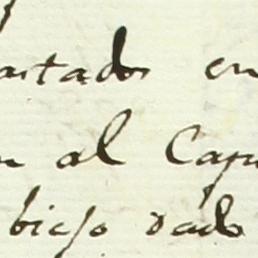 artado en
n al Cap
bicso dado